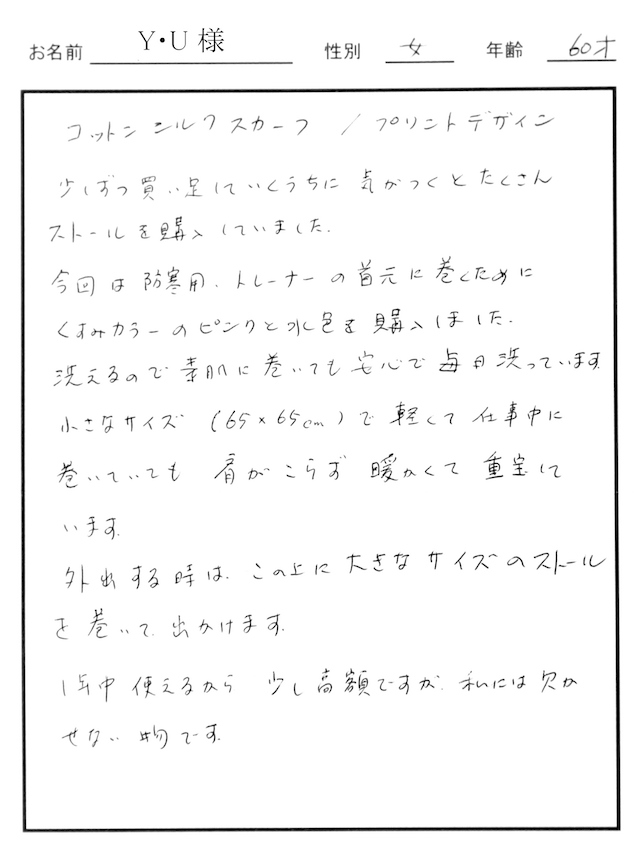 お名前 Y・U 様 性別 女 年齢 60才
コットンシルクスカーフ / プリントデザイン
少しずつ買い足していくうちに 気がつくとたくさん
ストールを購入していました.
今回は防寒用、トレーナーの首元に巻くために
くすみカラーのピンクと水色を購入しました.
洗えるので素肌に巻いても安心で毎日洗っています.
小さなサイズ (65×65cm)で軽くて仕事中に
巻いていても 肩がこらず 暖かくて 重宝して
います.
外出する時は、この上に大きなサイズのストール
を巻いて、出かけます.
1年中使えるから 少し高額ですが、私には欠か
せない物です.